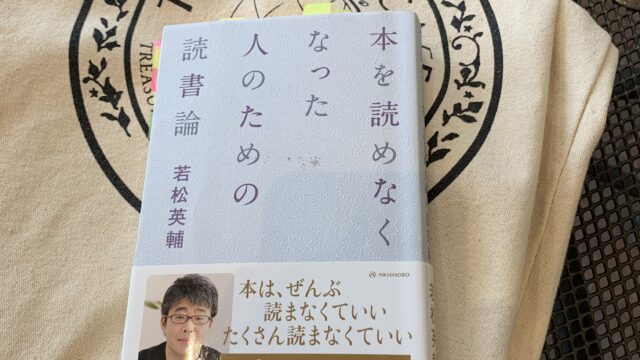 本を読めなく
なった
人のための
読書論
若松英輔
AKISHOBO
本は、ぜんぶ
読まなくていい
たくさん読まなくていい